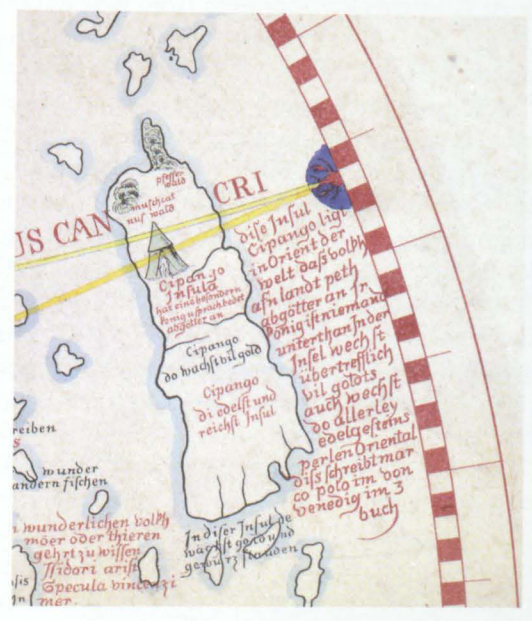 US CAN
CRI
pfeffer
wald
muschat
nus wald
Cipango
Insula
abgötter an
Cipango
do wachst vil gold
Cipango
di edelst und
reichst Insul
dise Insul
Cipango ligt
in Orient der
welt das volkh
afn landt peth
abgötter an Ir
König ist niemand
unterthan In der
Insel wechst
übertrefflich
vil goldts
auch wechst
do allerley
edelgesteins
perlen Oriental
diss schreibt mar
co polo im von
venedig im 3
buch
reiben
wunder
andern fischen
wunderlichen volkh
möer oder thieren
gehrt zu wissen
Isidori arist
Specula vincenzi
mer.
In diser Insul